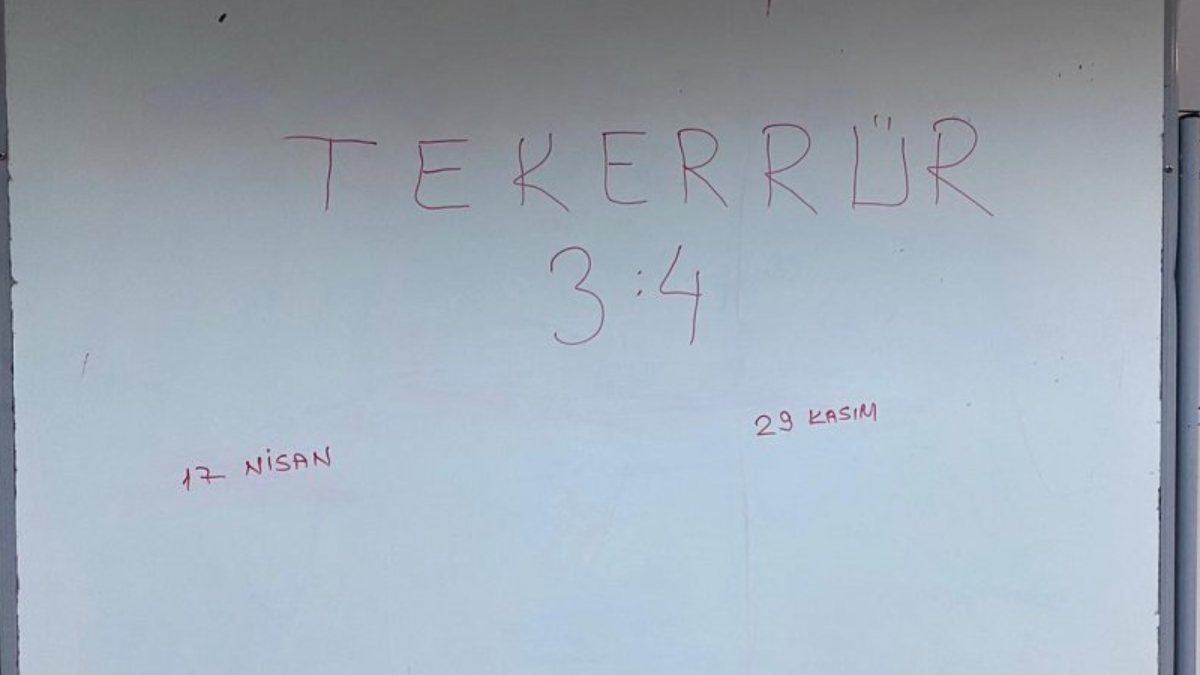 TEKERRÜR
3:4
29 KASIM
17 NİSAN